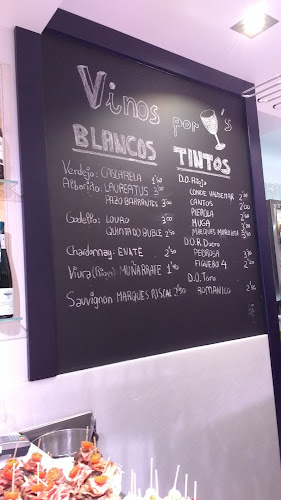 Vinos por 's
BLANCOS
Verdejo: CASCARELA 1'60
Albariño: LAUREATUS 2'50
PAZO BARRANTES 3'00
Godello: LOURO 3'00
QUINTA DO BUBLE 2'50
Chardonnay: ENATE 2'50
Viura (Rioja) MUÑARRATE 1'40
Sauvignón MARQUES RISCAL 2'50
TINTOS
D.O. Rioja
CONDE VALDEMAR
CANTOS
PIEROLA
MUGA
D.O.R. Duero
PEDROSA
FIGUERO 4
D.O. Toro
ROMANICO